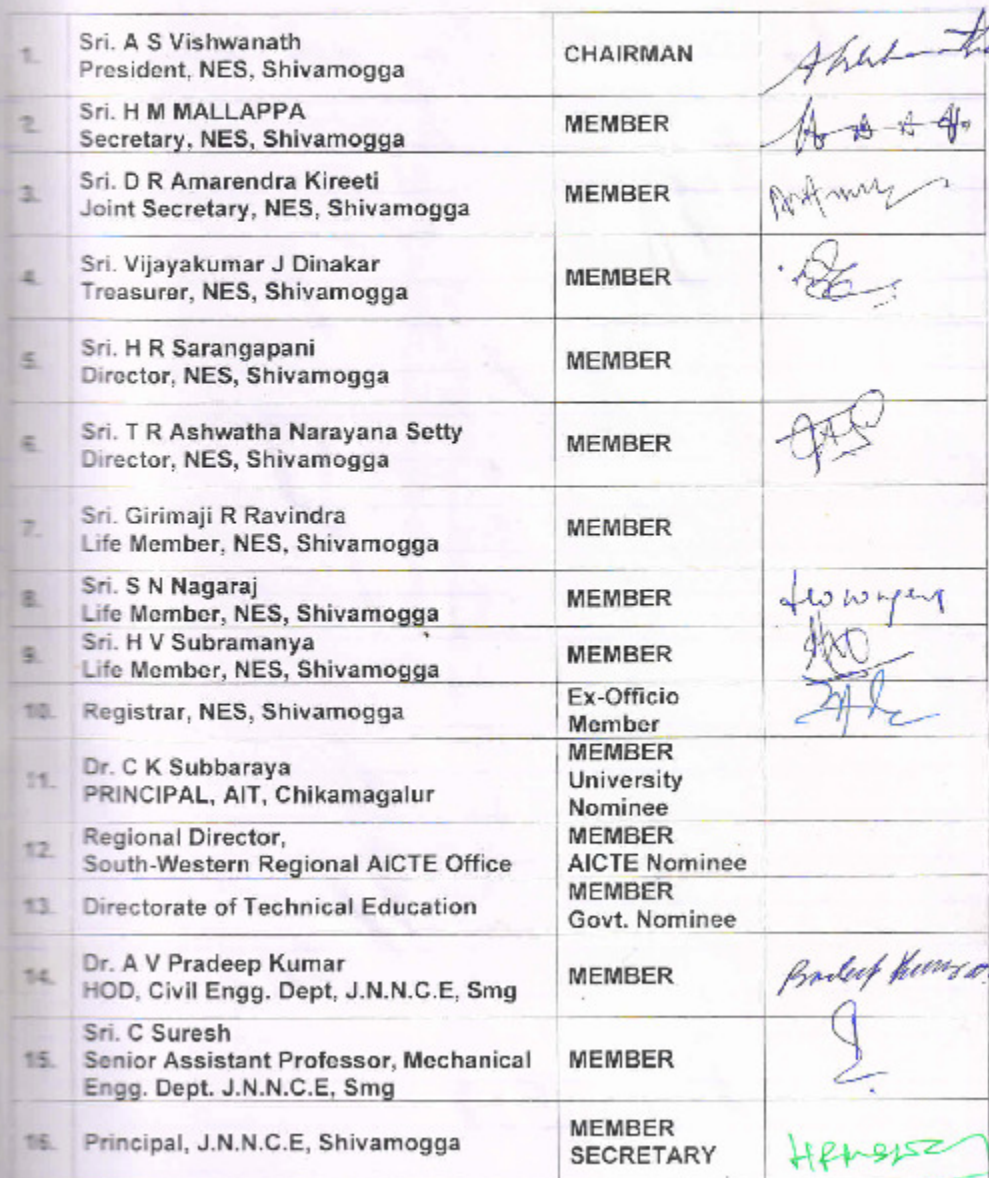 1. Sri. A S Vishwanath
President, NES, Shivamogga
CHAIRMAN
2. Sri. H M MALLAPPA
Secretary, NES, Shivamogga
MEMBER
3. Sri. D R Amarendra Kireeti
Joint Secretary, NES, Shivamogga
MEMBER
4. Sri. Vijayakumar J Dinakar
Treasurer, NES, Shivamogga
MEMBER
5. Sri. H R Sarangapani
Director, NES, Shivamogga
MEMBER
6. Sri. T R Ashwatha Narayana Setty
Director, NES, Shivamogga
MEMBER
7. Sri. Girimaji R Ravindra
Life Member, NES, Shivamogga
MEMBER
8. Sri. S N Nagaraj
Life Member, NES, Shivamogga
MEMBER
9. Sri. H V Subramanya
Life Member, NES, Shivamogga
MEMBER
10. Registrar, NES, Shivamogga
Ex-Officio
Member
11. Dr. C K Subbaraya
PRINCIPAL, AIT, Chikamagalur
MEMBER
University
Nominee
12. Regional Director,
South-Western Regional AICTE Office
MEMBER
AICTE Nominee
13. Directorate of Technical Education
MEMBER
Govt. Nominee
14. Dr. A V Pradeep Kumar
HOD, Civil Engg. Dept, J.N.N.C.E, Smg
MEMBER
15. Sri. C Suresh
Senior Assistant Professor, Mechanical
Engg. Dept. J.N.N.C.E, Smg
MEMBER
16. Principal, J.N.N.C.E, Shivamogga
MEMBER
SECRETARY